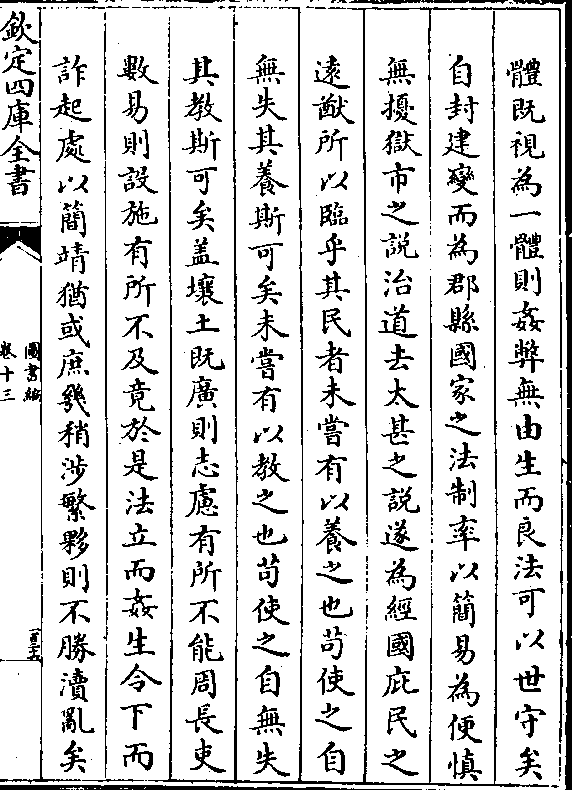 體既視為一體則姦弊無由生而良法可以世守矣
自封建變而為郡縣國家之法制率以簡易為便慎
無擾獄市之説治道去太甚之説遂為經國庇民之
逺猷所以臨乎其民者未嘗有以養之也苟使之自
無失其養斯可矣未嘗有以教之也苟使之自無失
其教斯可矣盖壤土既廣則志慮有所不能周長吏
數易則設施有所不及竟於是法立而姦生令下而
詐起處以簡靖猶或庶幾稍涉繁夥則不勝瀆亂矣
欽定四庫全書
圖書編
卷十三